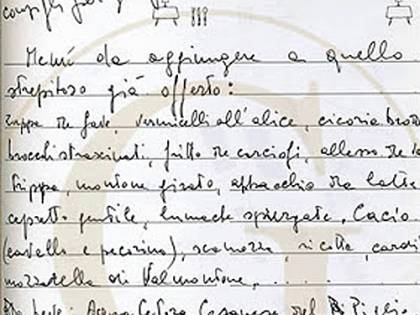 Menú da aggiungere a quello
strepitoso già offerto:
zuppa di fave, vermicelli all'alice, cicoria
broccoli strascinati, fritto di carciofi, allesso
trippa, montone girato, abbacchio da latte
capretto gentile, lumache spurgate, Cacio
(cavallo e pecorino), scamozza, ricotta,
mozzarella di Valmontone, . . . . .
Da bere: Acqua Cesanese del Piglio